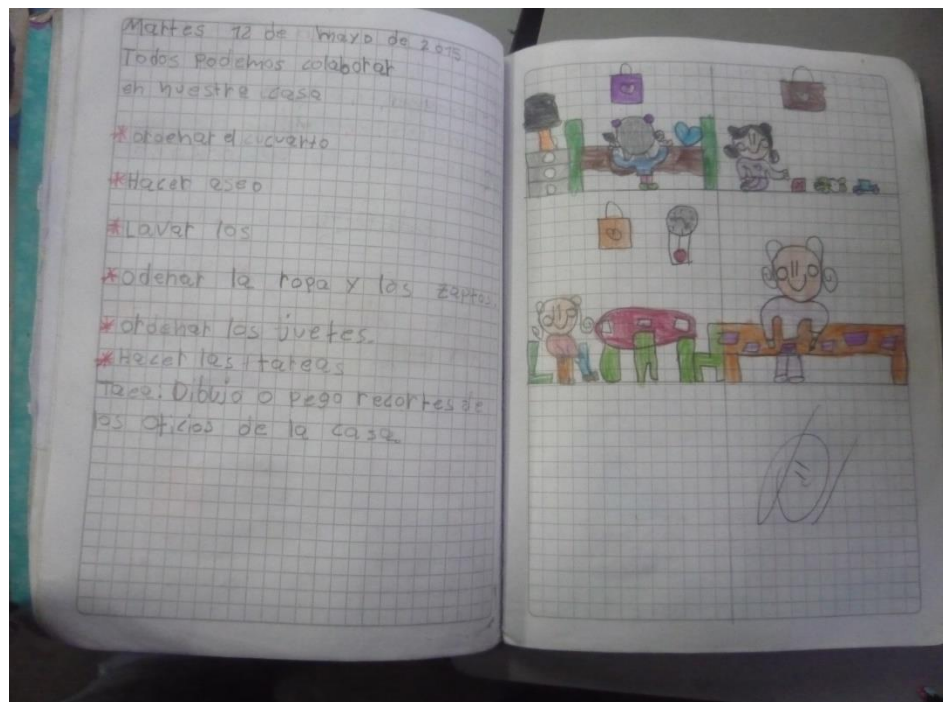 Martes 12 de mayo de 2.015
Todos Podemos colaborar
en nuestra casa
*ordenar el cuarto
*Hacer aseo
*Lavar los
*odenar la ropa y los zaptos.
*ordenar los juetes.
*Hacer las tareas
Taea: Dibujo o pego recortes de
los oficios de la casa